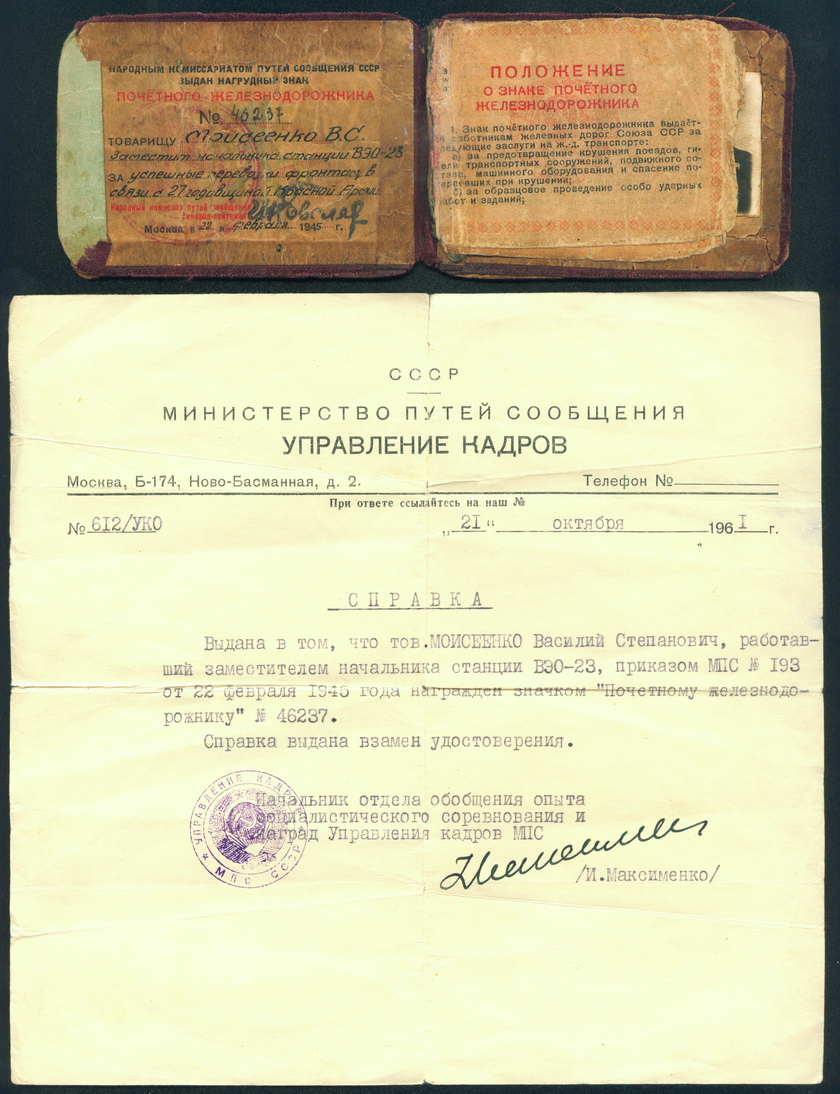 НАРОДНЫМ КОМИССАРИАТОМ ПУТЕЙ СООБЩЕНИЯ СССР
ВЫДАН НАГРУДНЫЙ ЗНАК
ПОЧЁТНОГО ЖЕЛЕЗНОДОРОЖНИКА
№ 46237
ТОВАРИЩУ Моисеенко В.С.
Заместит. начальника станции ВЭО-23
ЗА успешные перевозки фронтов в
связи с 27 годовщиной Красной Арм.
Народный комиссар путей сообщения
Генерал-лейтенант Ковалев
Москва „22" февраля 1945 г.
ПОЛОЖЕНИЕ
О ЗНАКЕ ПОЧЁТНОГО
ЖЕЛЕЗНОДОРОЖНИКА
1. Знак почётного железнодорожника выдаёт-
работникам железных дорог Союза ССР за
следующие заслуги на ж.-д. транспорте:
а) за предотвращение крушения поездов, ги-
транспортных сооружений, подвижного со-
става, машинного оборудования и спасение по-
при крушении;
б) за образцовое проведение особо ударных
работ и заданий;
СССР
МИНИСТЕРСТВО ПУТЕЙ СООБЩЕНИЯ
УПРАВЛЕНИЕ КАДРОВ
Москва, Б-174, Ново-Басманная, д. 2. Телефон №
При ответе ссылайтесь на наш №
№ 612/УКО „21" октября 1961 г.
СПРАВКА
Выдана в том, что тов.МОИСЕЕНКО Василий Степанович, работав-
ший заместителем начальника станции ВЭО-23, приказом МПС № 193
от 22 февраля 1945 года награжден значком "Почетному железнодо-
рожнику" № 46237.
Справка выдана взамен удостоверения.
Начальник отдела обобщения опыта
социалистического соревнования и
наград Управления кадров МПС
/И.Максименко/
УПРАВЛЕНИЕ КАДРОВ
МПС СССР